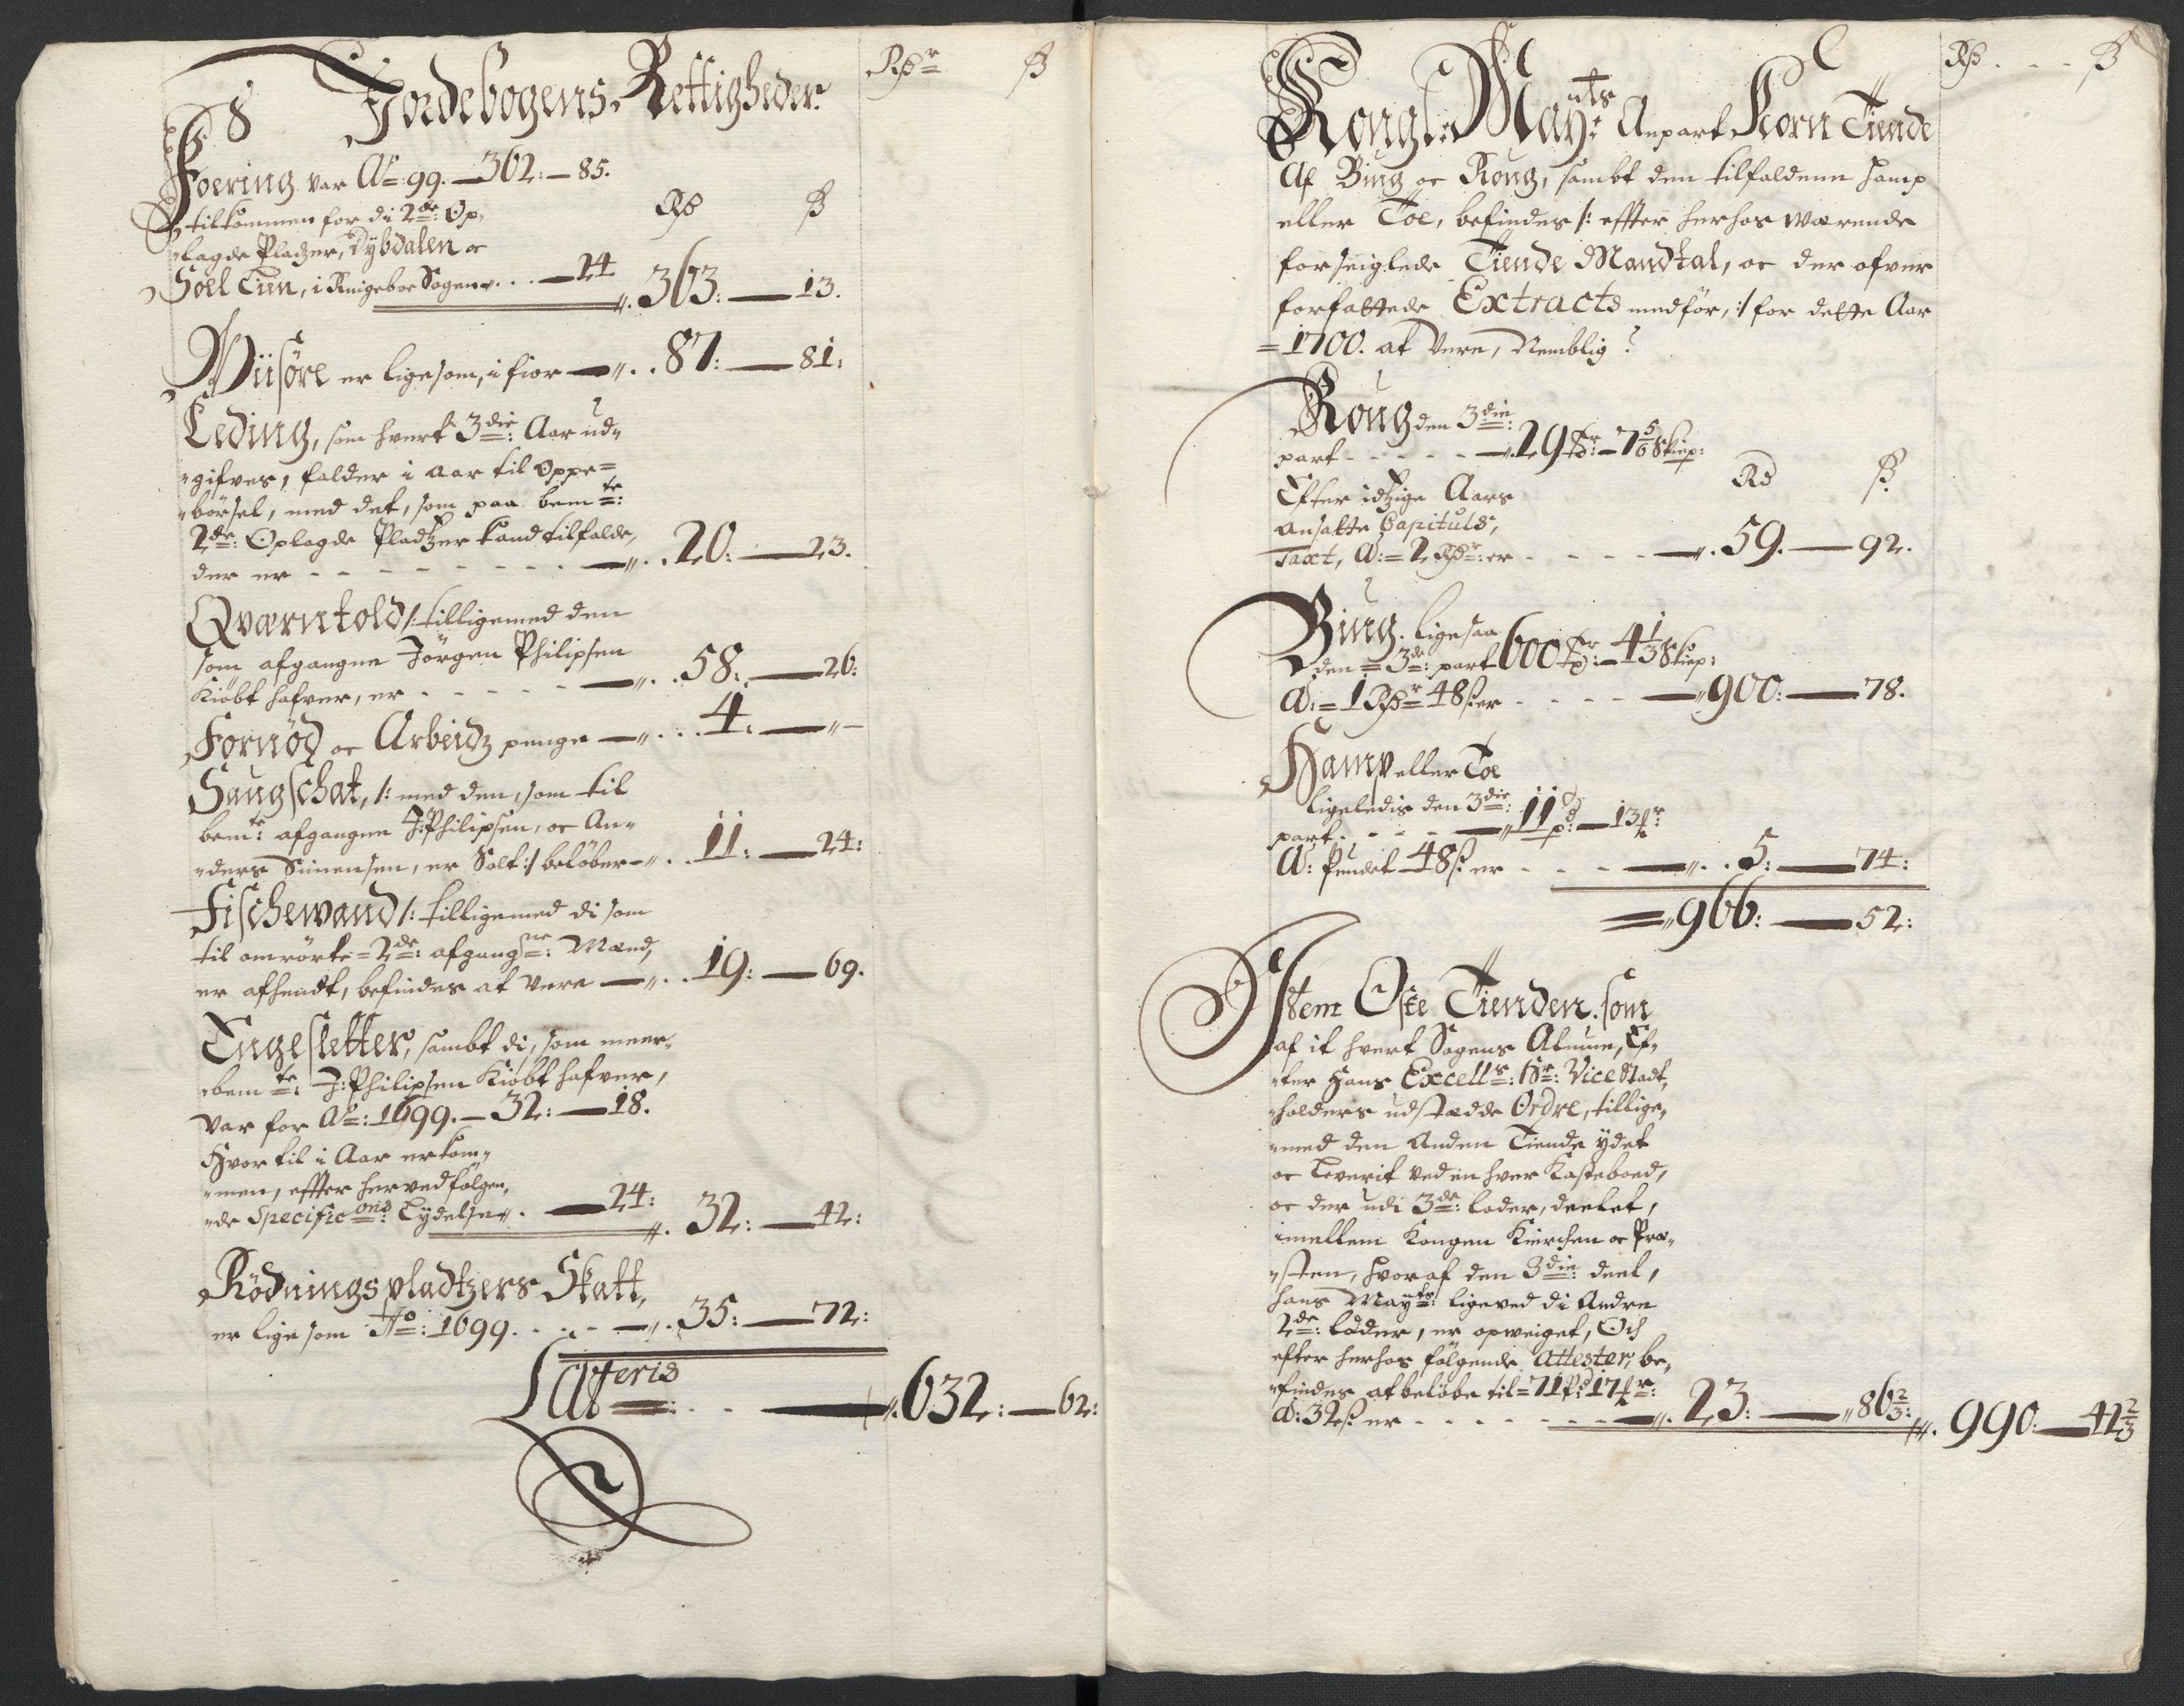 8 Jordebogens Rettigheder. Rdr ß
Foering var Ao: 99. — 362: — 85.
tilkommen for di 2de: Op- Rd ß
lagde Pladzer, Dybdalen oc
Soel Tien, i Ringeboe Sogen . . — 24
363: — 13.
Viisöre er lige som, i fior — 87: — 81:
Leding, som hvert 3die: Aar ud-
gifves, falder i aar til Oppe=
börsel, med det, som paa bemte:
2de: Oplagde Pladtzer kand tilfalde,
der er - - - - - - 20: — 23.
Qværntold /: tilligemed den
som afgangne Jörgen Philipsen
Kiöbt hafver, er - - - - 58: — 26:
Fornöd oc Arbeidz penge — 4: — "
Saugschat, /: med den, som til
bemte: afgangne J: Philipsen, oc An-
ders Simensen, er Solt :/ belöber — 11: — 24:
Fischewand /: tilligemed di som
til omrörte = 2de: afgangne: Mænd,
er afhendt, befindes at vere — 19: — 69.
Engesletter, sambt di, som meer-
bemte: J: Philipsen Kiöbt hafver,
var for Ao: 1699. — 32: — 18.
Hvor til i Aar erkom-
men, effter herved fölgen-
de Specificons: Lydelse . — 24:
32: — 42:
Rödnings pladtzers Skatt,
er lige som Ao: 1699. - - - 35: — 72:
Lateris — 632: — 62:
Kongl: Mayts: Anpart Korn Tiende Rd - - - ß
Af Biug oc Roug, sambt den tilfaldene Hamp
eller Toe, befindes /: effter herhos werende
forseiglede Tiende Mandtal, oc der ofver
forfattede Extracts medför, :/ for dette Aar
= 1700. at Vere, Nemblig
Roug den 3die:
part - - - - - 29 Tr: — 7 5/6 Skiep:
Efter idtzige Aars Rd ß
ansatte Capituls,
Taxt, A: = 2 Rdr: er - - - - 59. — 92.
Biug. lige saa
den = 3de: part 600 Tr: — 4 1/3 Skiep:
A: = 1 Rdr 48 ß er - - - - 900: — 78.
Hamp eller Toe
ligeledis den 3die:
part - - - - 11 pd: — 13 fr:
A: Pundet 48 ß: er - - - 5: — 74:
= 966: — 52:
Item Oste Tienden. som
af it hvert Sogens Almue, Ef-
ter Hans Excells: Hr: Vice Stadt-
holders udstædde Ordre, tillige-
med den Anden Tiende ydet
oc Leverit ved en hver Kasteboed,
oc der udi 3de: lader, deelet,
imellem Kongen Kierchen oc Præ-
sten, hvor af den 3die: deel,
Hans Mayts: ligeved di Andre
2de: lader, er opweiget, Och
efter herhos fölgende Attester, be-
findes at belöbe til = 71 Pd: 17 fr:
A: 32 ß: er - - - - - 23: — 86 2/3: 990: — 42 2/3